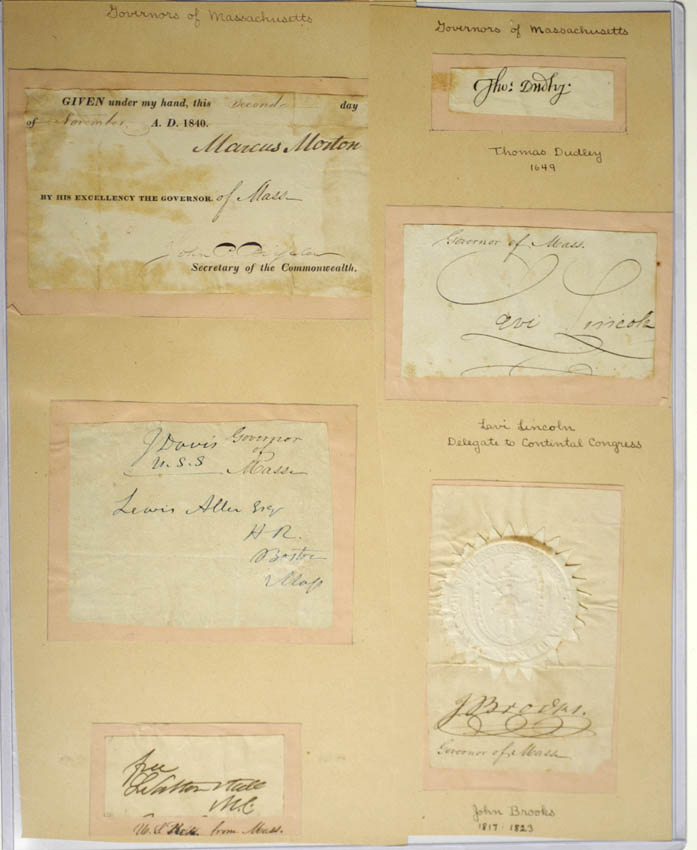 Governors of Massachusetts
GIVEN under my hand, this Second day
of November A. D. 1840.
Marcus Morton
BY HIS EXCELLENCY THE GOVERNOR. of Mass
John P. Bigelow
Secretary of the Commonwealth.
J Davis Governor
U.S.S of
Mass
Lewis Allen Esq
H R.
Boston
Mass
free
L Saltonstall
M.C
U.S. Rep. from Mass.
Governors of Massachusetts
Tho: Dudly
Thomas Dudley
1649
Governor of Mass.
Levi Lincoln
Lavi Lincoln
Delegate to Contintal Congress
J Brooks.
Governor of Mass
John Brooks
1817-1823